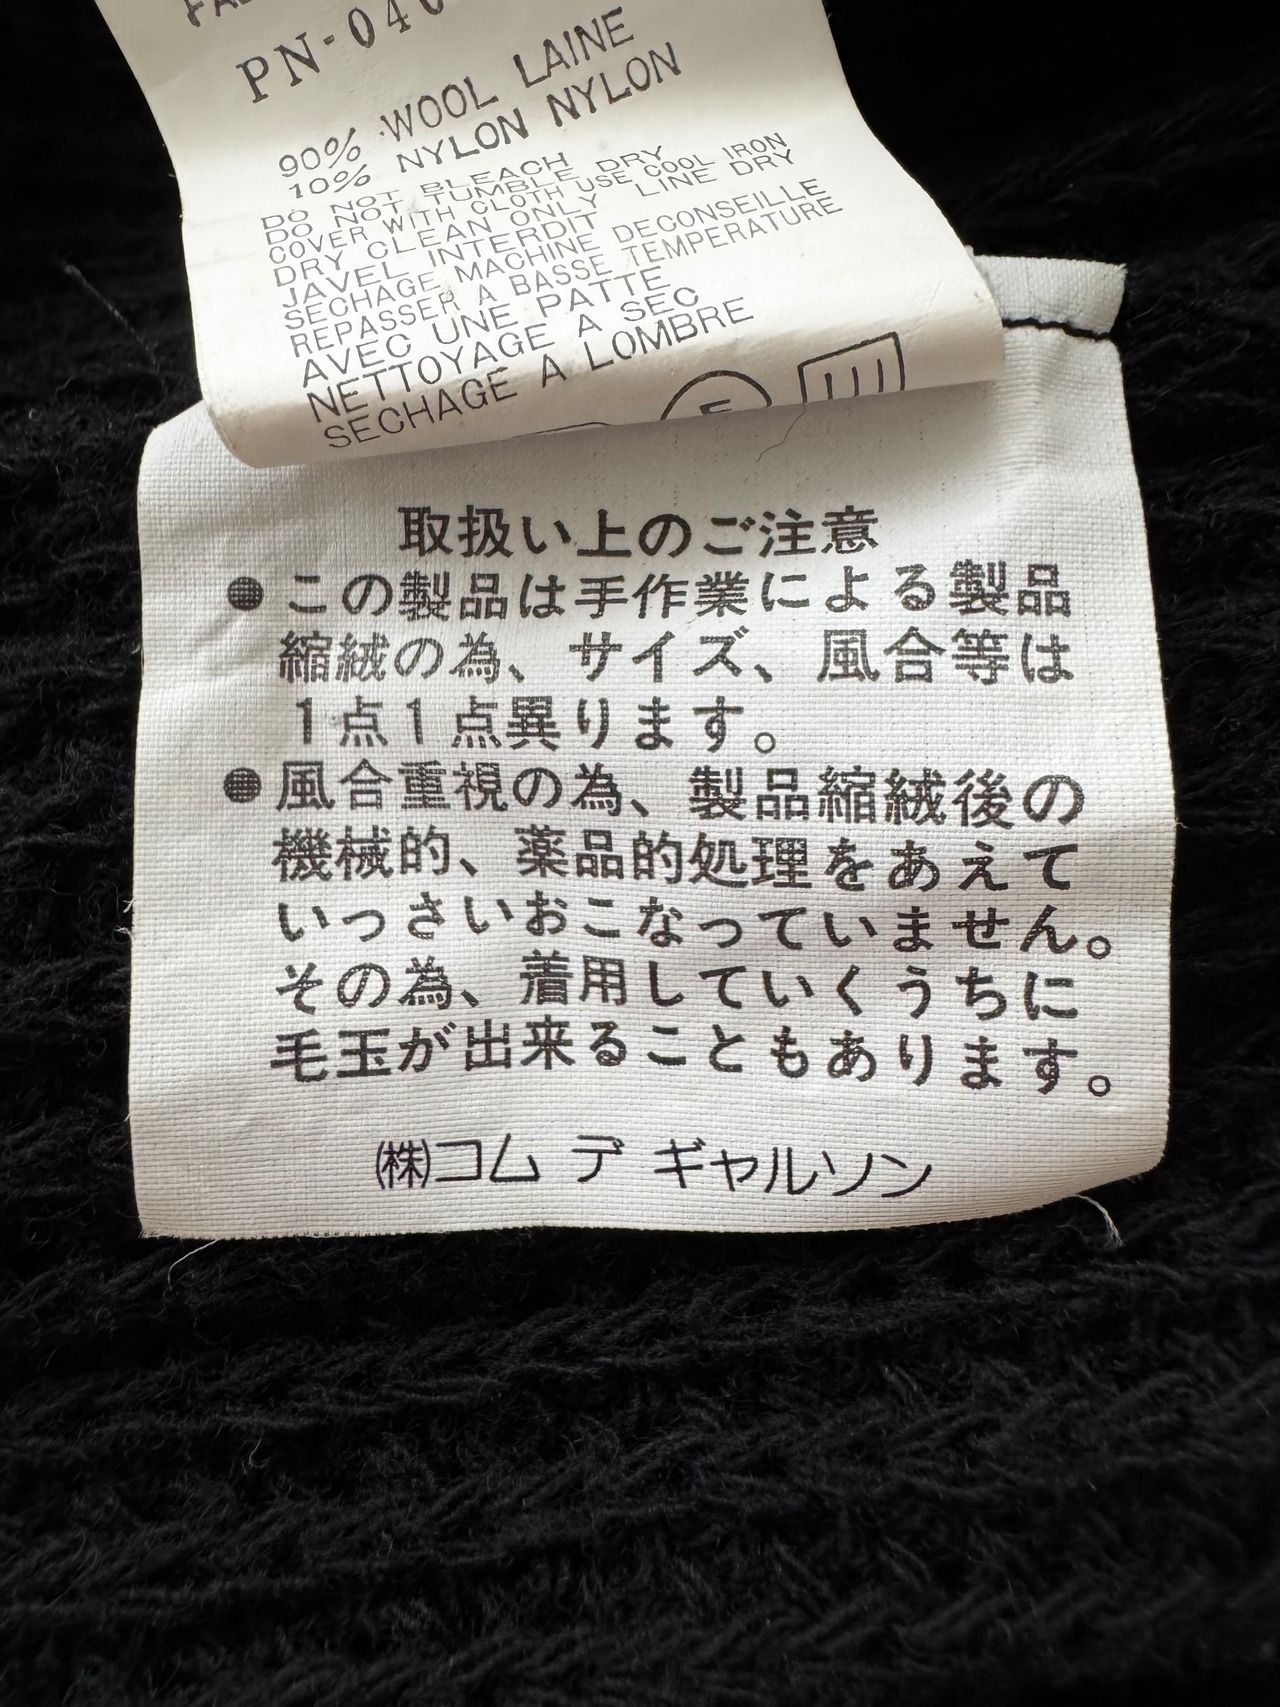 PN-040
90% WOOL LAINE
10% NYLON NYLON
DO NOT BLEACH
DO NOT TUMBLE DRY
COVER WITH CLOTH USE COOL IRON
DRY CLEAN ONLY LINE DRY
JAVEL INTERDIT
SECHAGE MACHINE DECONSEILLE
REPASSER A BASSE TEMPERATURE
AVEC UNE PATTE
NETTOYAGE A SEC
SECHAGE A LOMBRE
取扱い上のご注意
●この製品は手作業による製品
縮絨の為、サイズ、風合等は
1点1点異ります。
●風合重視の為、製品縮絨後の
機械的、薬品的処理をあえて
いっさいおこなっていません。
その為、着用していくうちに
毛玉が出来ることもあります。
㈱コム デ ギャルソン